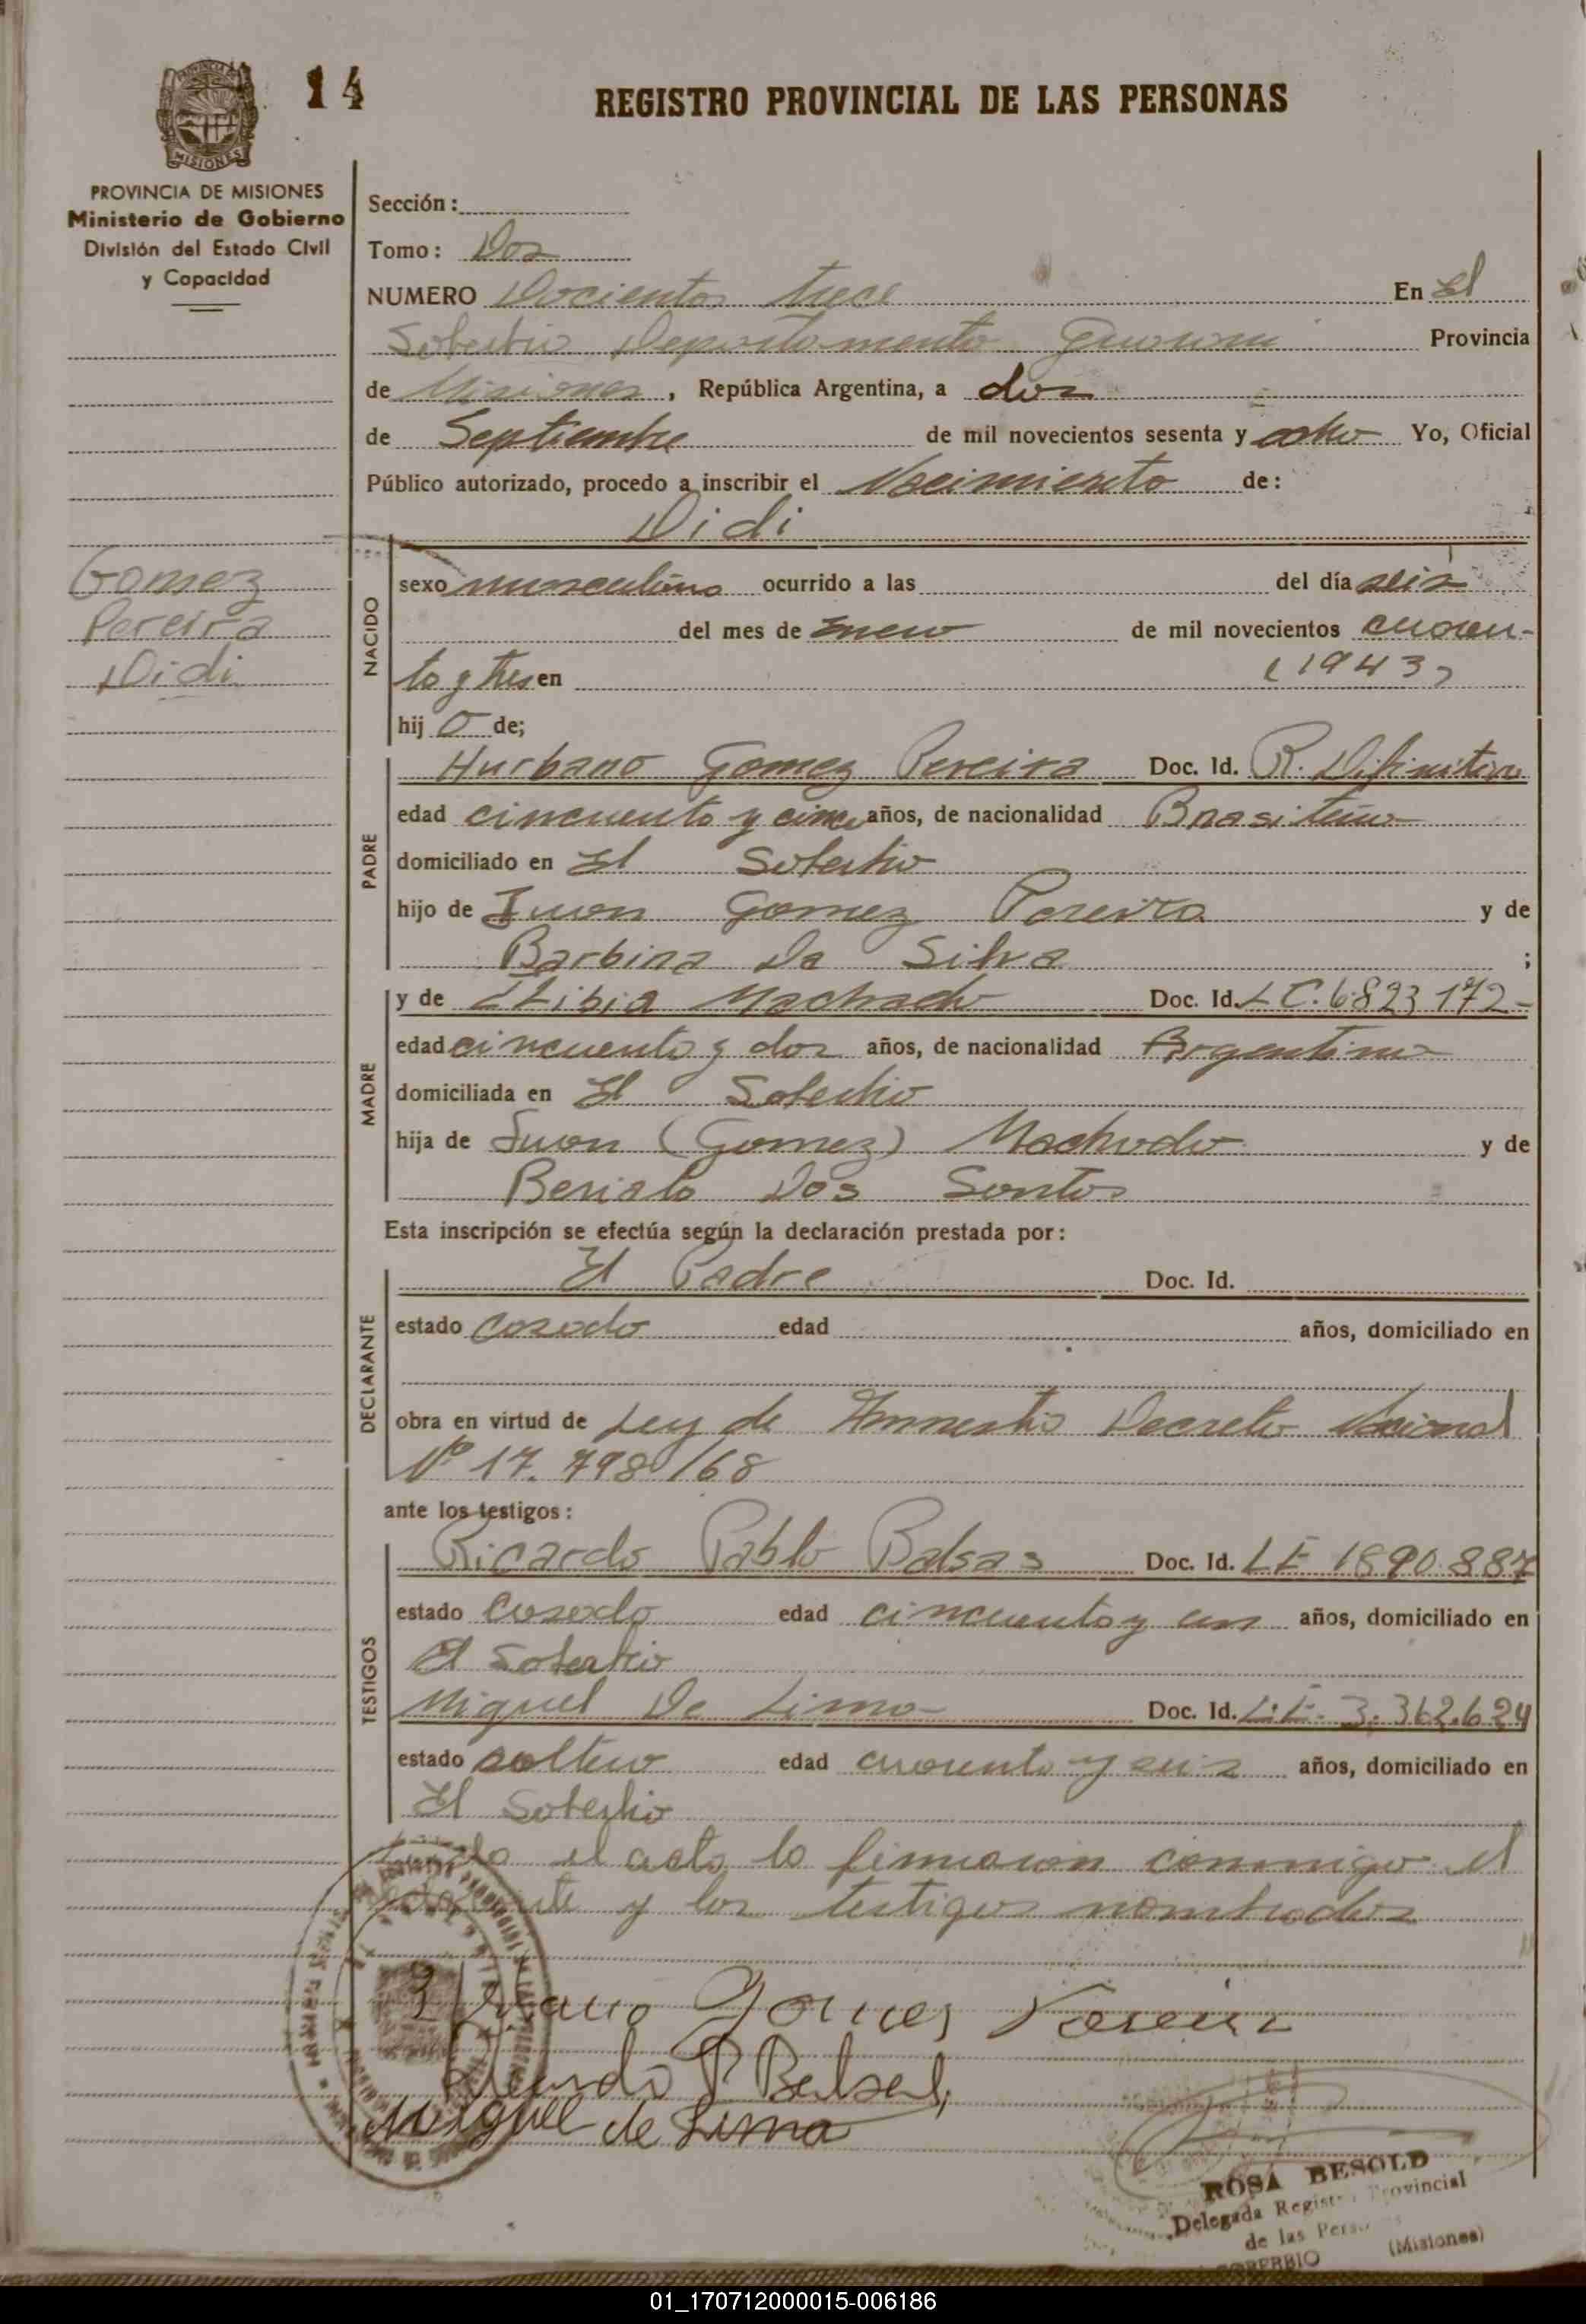 14
REGISTRO PROVINCIAL DE LAS PERSONAS
MISIONES
PROVINCIA DE MISIONES
Ministerio de Gobierno
División del Estado Civil
y Capacidad
Gomez
Pereira
Didi
Sección:
Tomo: Dos
NUMERO Docientos trece En El
Soberbio Departamento Guarani Provincia
de Misiones, República Argentina, a dos
de Septiembre de mil novecientos sesenta y ocho Yo, Oficial
Público autorizado, procedo a inscribir el Nacimiento de:
Didi
NACIDO
sexo masculino ocurrido a las del día seis
del mes de Enero de mil novecientos cuaren-
ta y tres en (1943)
hij o de;
PADRE
Hurbano Gomez Pereira Doc. Id. R. Difinitivo
edad cincuenta y cinco años, de nacionalidad Brasileño
domiciliado en El Soberbio
hijo de Juan Gomez Pereira y de
Barbina Da Silva ;
MADRE
y de Machado Doc. Id. L C. 6823172-
edad cincuenta y dos años, de nacionalidad Argentina
domiciliada en El Soberbio
hija de Juan (Gomez) Machado y de
Dos Santos
Esta inscripción se efectúa según la declaración prestada por:
DECLARANTE
El Padre Doc. Id.
estado casado edad años, domiciliado en
obra en virtud de Ley de Amnestia Decreto Nacional
Nº 17.798/68
ante los testigos:
TESTIGOS
Ricardo Pablo Balsas Doc. Id. LE 1890.887
estado casado edad cincuenta y un años, domiciliado en
El Soberbio
Miguel De Lima Doc. Id. L.E. 3.362.624
estado soltero edad cuarenta y seis años, domiciliado en
El Soberbio
el acta la firmaron conmigo el
y los testigos nombrados
Gomes Pereira
P Balsas
Miguel de Lima
ROSA BESOLD
Delegada Registro Provincial
de las
SOBERBIO (Misiones)
01_170712000015-006186